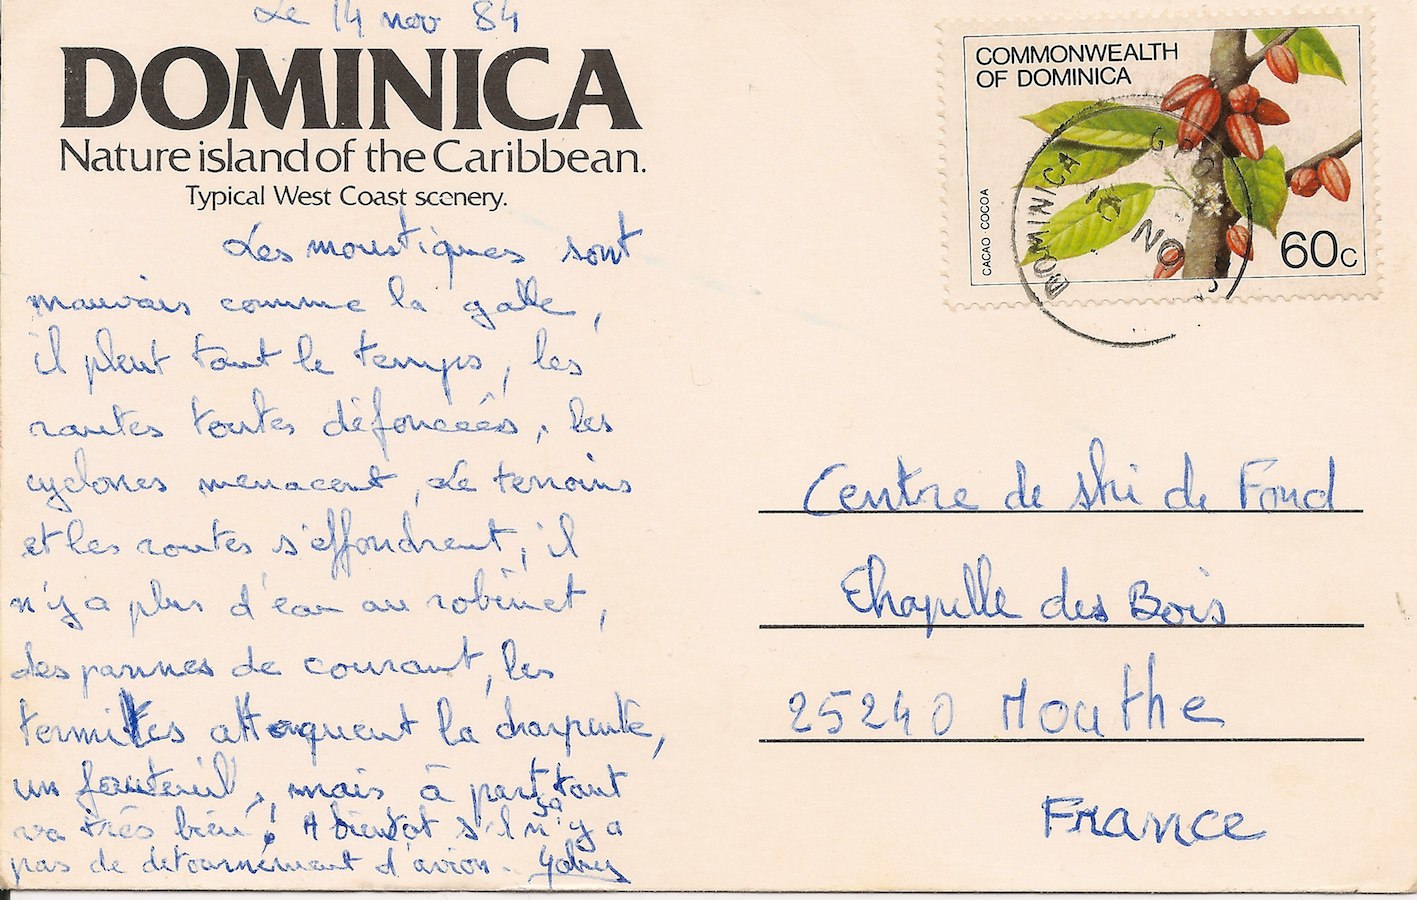 Le 14 nov 84
DOMINICA
Nature island of the Caribbean.
Typical West Coast scenery.
Les moustiques sont
mauvais comme la galle,
il pleut tout le temps, les
routes toutes défoncées, les
cyclones menacent, Le terrains
et les routes s'effondrent, il
n'y a plus d'eau au robinet,
des pannes de courant, les
termites attaquent la charpente,
un fauteuil, mais à part ça tout
va très bien! A bientôt s'il n'y a
pas de détournement d'avion.
COMMONWEALTH
OF DOMINICA
CACAO COCOA
60c
DOMINICA
G.P.O
NO
Centre de ski de Fond
Chapelle des Bois
25240 Mouthe
France